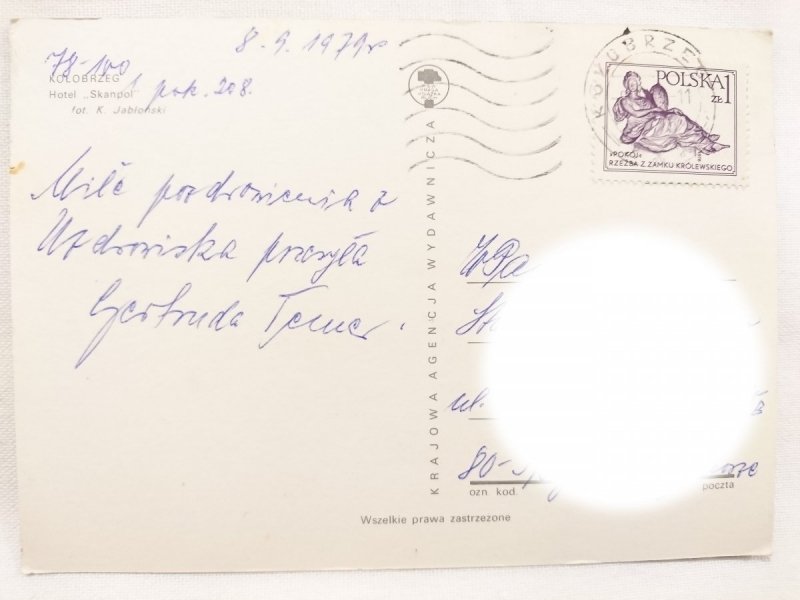 8. 9. 1979r
78-100
KOŁOBRZEG
Hotel „Skanpol"
1 pok. 208.
fot. K. Jabłoński
Miłe pozdrowienia z
Uzdrowiska przesyła
Gertruda
KRAJOWA AGENCJA WYDAWNICZA
KOŁOBRZE
11
POLSKA
ZŁ 1
»POKÓJ«
RZEŹBA Z ZAMKU KRÓLEWSKIEGO
WPa
ul.
80-
ozn kod
poczta
Wszelkie prawa zastrzeżone